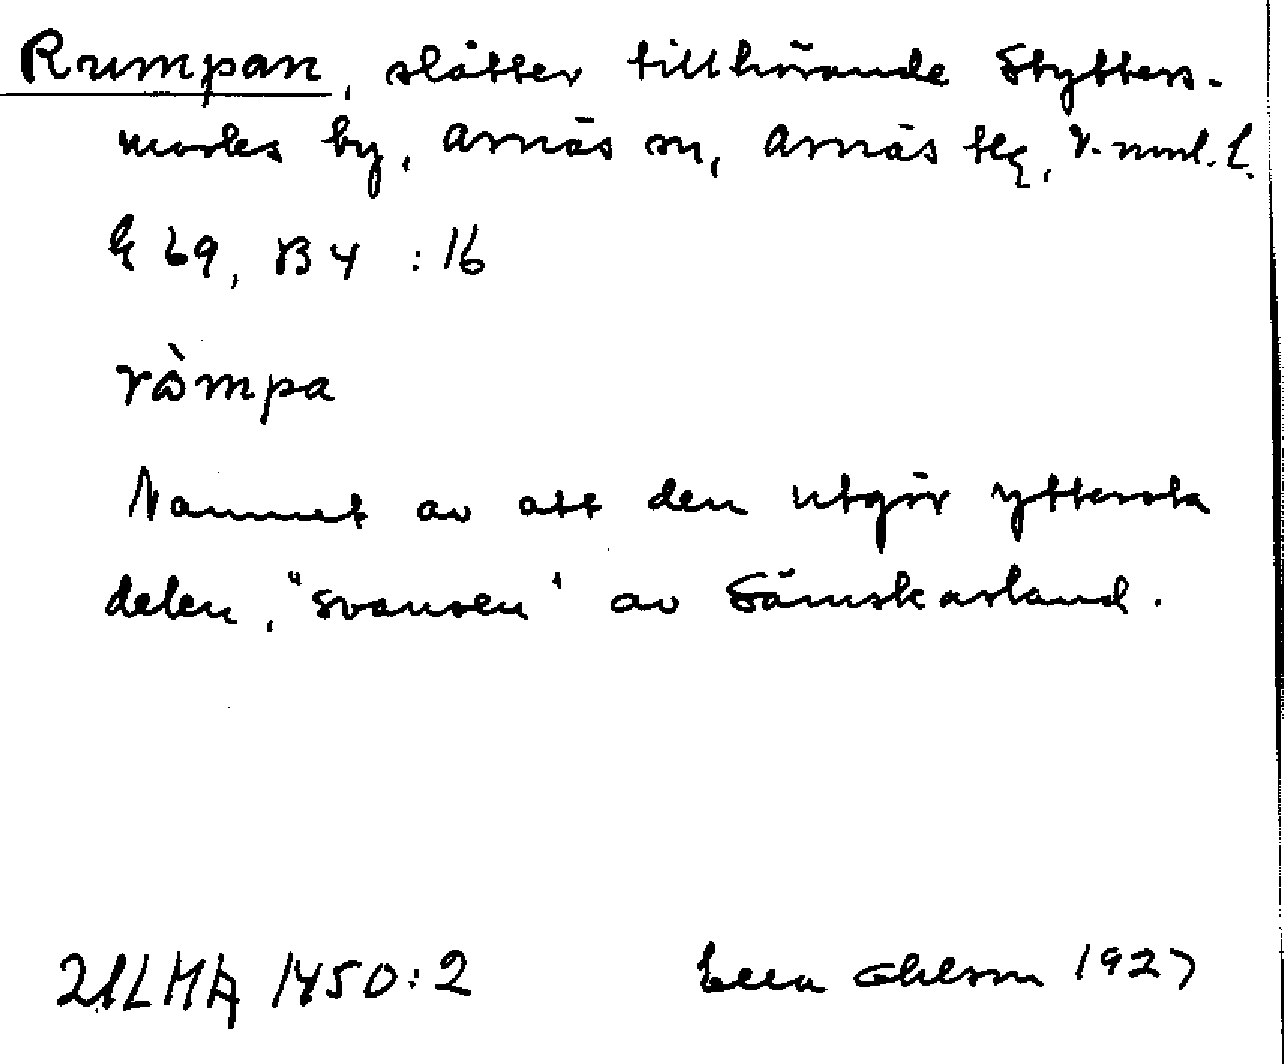 Rumpan, slåtter tillhörande Stytters-
marks by, Arnäs sn, Arnäs tlg, V.nml. L.
G 69, B4 : 16
ròmpa
Namnet av att den utgör yttersta
delen, "svansen" av Sämskarland.
ULMA 1450:2 Ella Ohlson 1927